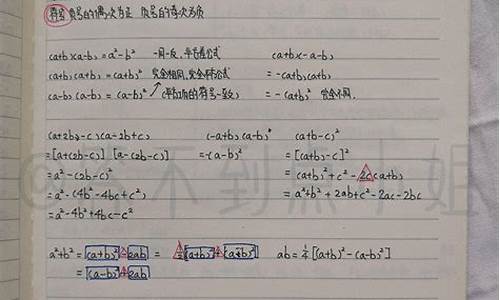 符号 负号的偶次为正 负号的奇次为负
(a+b)(a-b)=a²-b² 一同一反,平方差公式 (a+b)(-a-b)
(a+b)(a+b)=(a+b)² 完全相同,完全平方公式 =-(a+b)(a+b)
(a-b)(a-b)=(a-b)² (平方项的符号一致) =-(a+b)² 完全不同.
(a+2b-c)(a-2b+c) (-a+b)(a-b) (a+b-c)²
=[a+(2b-c)][a-(2b-c)] =-(a-b)² =[(a+b)-c]²
=a²-(2b-c)² =(a+b)²+c²-2c(a+b)
=a²-(4b²-4bc+c²) =a²+b²+2ab+c²-2ac-2bc
=a²-4b²+4bc-c²
a²+b²=(a+b)²-2ab = ½[(a+b)²+(a-b)²] ab=¼[(a+b)²-(a-b)²]
=(a-b)²+2ab